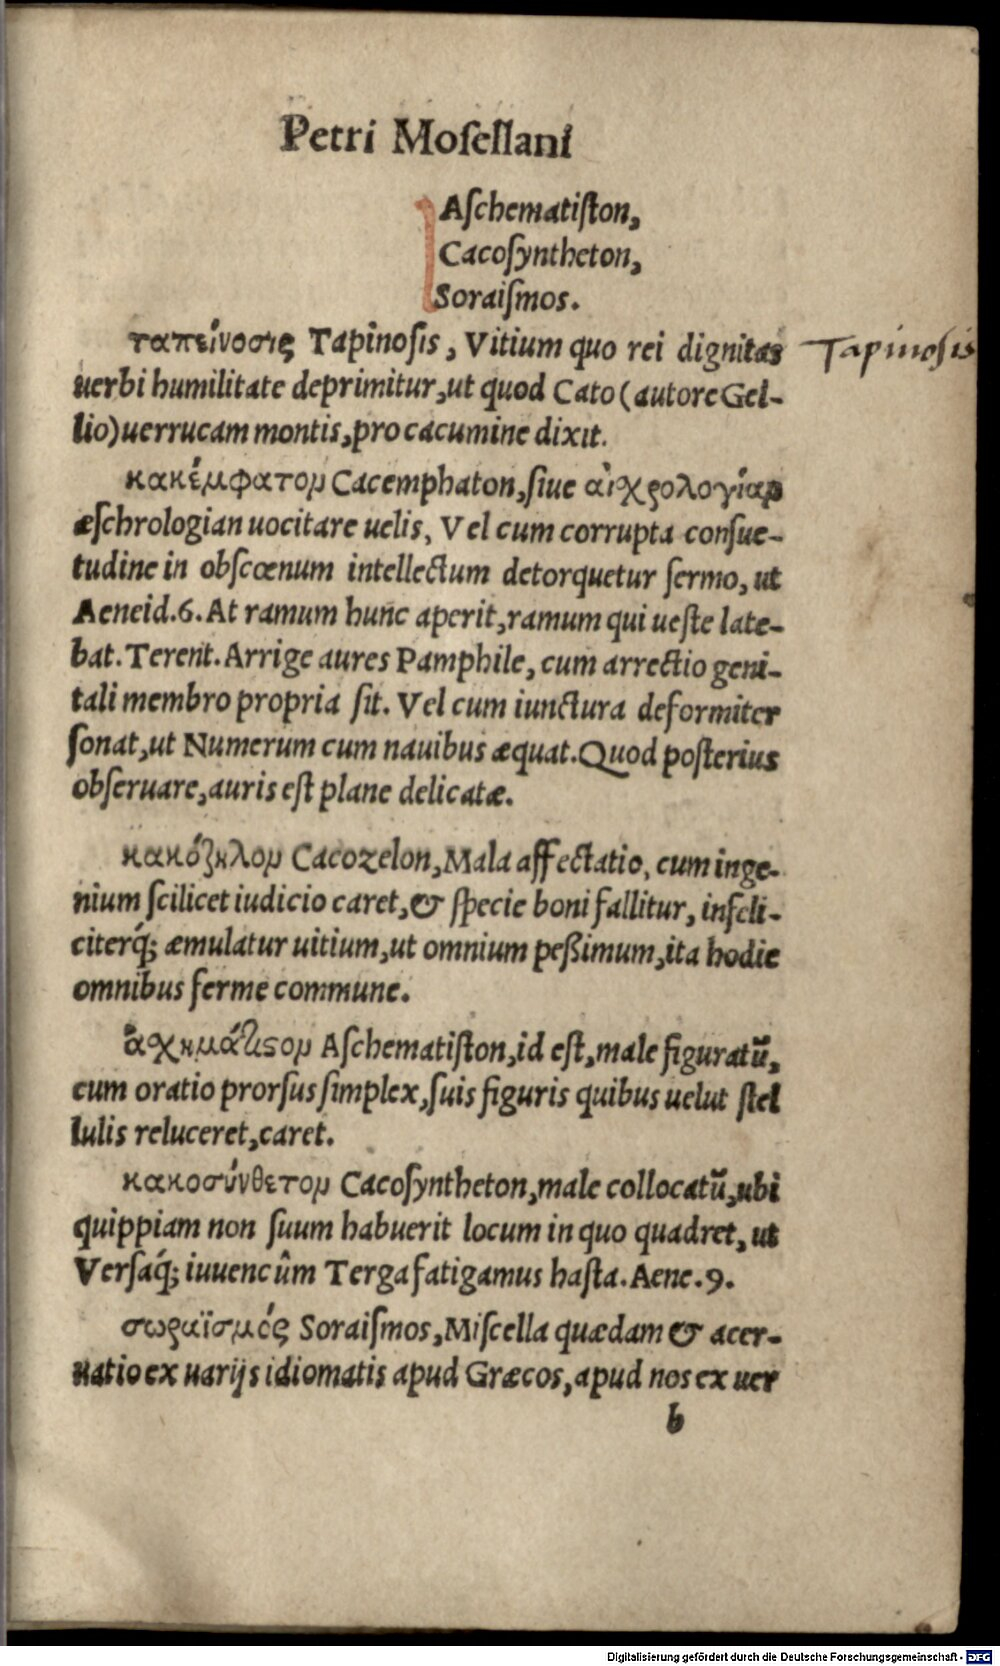 Petri Moſellani
Aſchematiſton,
Cacoſyntheton,
Soraiſmos.
ταπείνοσις Tapinoſis, Vitium quo rei dignitas
Tapinosis
uerbi humilitate deprimitur, ut quod Cato (autore Gel-
lio) uerrucam montis, pro cacumine dixit.
κακέμφατον Cacemphaton, ſiue αἰχρολογίαν
æſchrologian uocitare uelis, Vel cum corrupta conſue-
tudine in obſcœnum intellectum detorquetur ſermo, ut
Aeneid. 6. At ramum hunc aperit, ramum qui ueſte late-
bat. Terent. Arrige aures Pamphile, cum arrectio geni-
tali membro propria ſit. Vel cum iunctura deformiter
ſonat, ut Numerum cum nauibus æquat. Quod poſterius
obſeruare, auris eſt plane delicatæ.
κακόζηλον Cacozelon, Mala affectatio, cum inge-
nium ſcilicet iudicio caret, & ſpecie boni fallitur, infeli-
citerq́; æmulatur uitium, ut omnium peßimum, ita hodie
omnibus ferme commune.
ἀχημάτιςον Aſchematiſton, id eſt, male figuratũ,
cum oratio prorſus ſimplex, ſuis figuris quibus uelut ſtel
lulis reluceret, caret.
κακοσύνθετον Cacoſyntheton, male collocatũ, ubi
quippiam non ſuum habuerit locum in quo quadret, ut
Verſaq́; iuuencûm Terga fatigamus haſta. Aene. 9.
σωραϊσμός Soraiſmos, Miſcella quædam & acer-
uatio ex uarijs idiomatis apud Græcos, apud nos ex uer
b
Digitalisierung gefördert durch die Deutsche Forschungsgemeinschaft - DFG